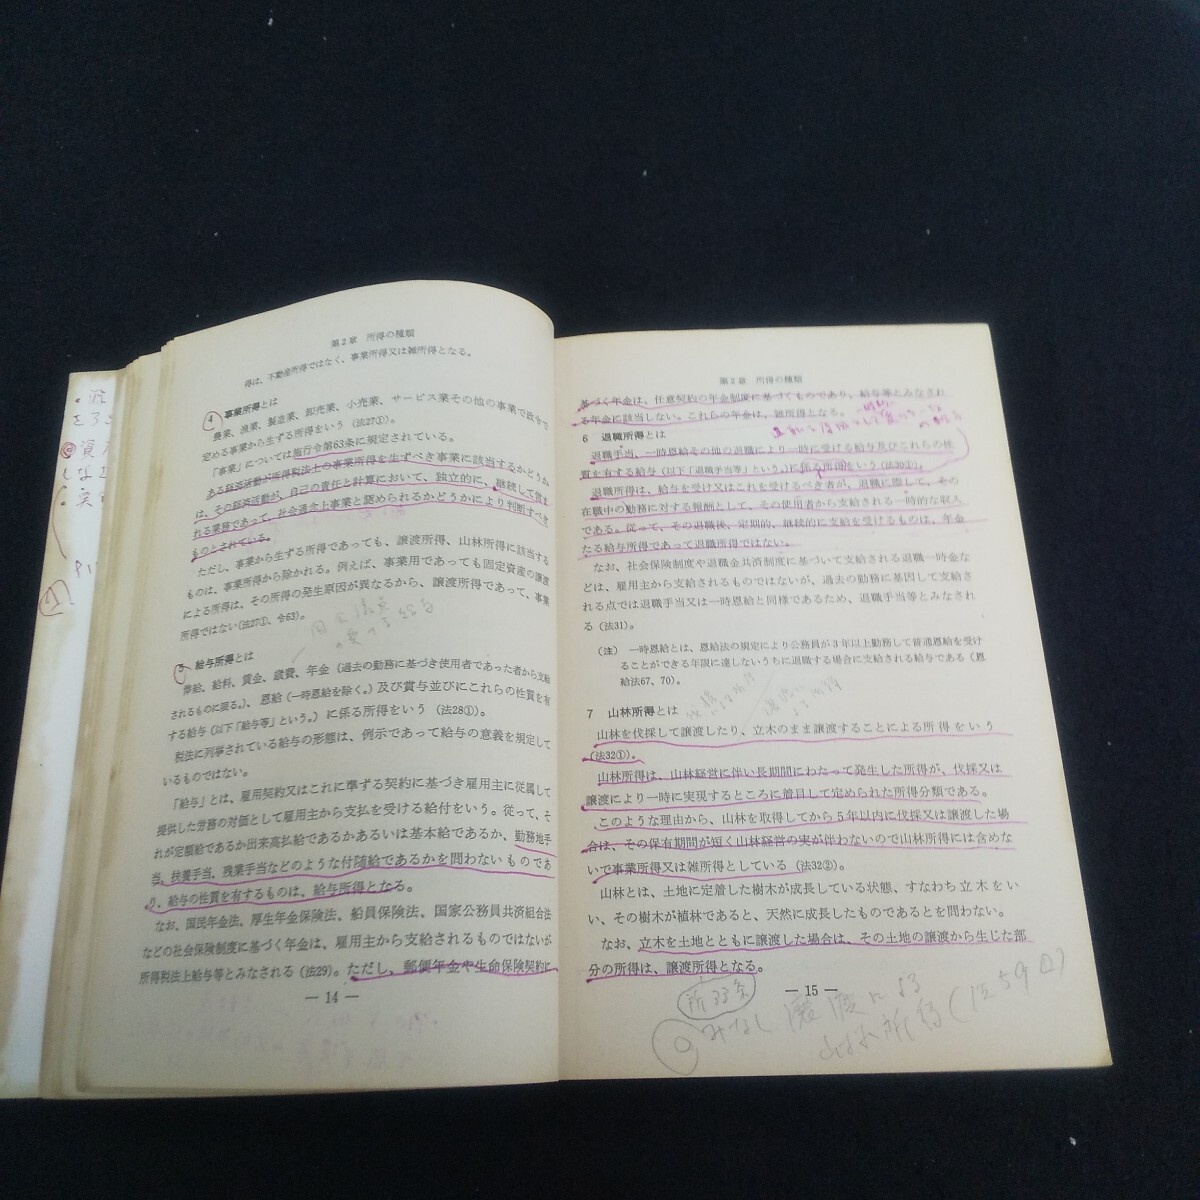 第2章 所得の種類
得は、不動産所得ではなく、事業所得又は雑所得となる。
4 事業所得とは
農業、漁業、製造業、卸売業、小売業、サービス業その他の事業で政令で
定める事業から生ずる所得をいう(法27①)。
「事業」については施行令第63条に規定されている。
ある経済活動が所得税法上の事業所得を生ずべき事業に該当するかどうか
は、その経済活動が、自己の責任と計算において、独立的に、継続して営ま
れる業務であって、社会通念上事業と認められるかどうかにより判断すべき
ものとされている。
ただし、事業から生ずる所得であっても、譲渡所得、山林所得に該当する
ものは、事業所得から除かれる。例えば、事業用であっても固定資産の譲渡
による所得は、その所得の発生原因が異なるから、譲渡所得であって、事業
所得ではない(法27①、令63)。
5 給与所得とは
俸給、給料、賃金、歳費、年金(過去の勤務に基づき使用者であった者から支給
されるものに限る。)、恩給(一時恩給を除く。)及び賞与並びにこれらの性質を有
する給与(以下「給与等」という。)に係る所得をいう(法28①)。
税法に列挙されている給与の形態は、例示であって給与の意義を規定して
いるものではない。
「給与」とは、雇用契約又はこれに準ずる契約に基づき雇用主に従属して
提供した労務の対価として雇用主から支払を受ける給付をいう。従って、そ
れが定額給であるか出来高払給であるかあるいは基本給であるか、勤務地手
当、扶養手当、残業手当などのような付随給であるかを問わないものであ
り、給与の性質を有するものは、給与所得となる。
なお、国民年金法、厚生年金保険法、船員保険法、国家公務員共済組合法
などの社会保険制度に基づく年金は、雇用主から支給されるものではないが
所得税法上給与等とみなされる(法29)。ただし、郵便年金や生命保険契約に
— 14 —
第2章 所得の種類
基づく年金は、任意契約の年金制度に基づくものであり、給与等とみなされ
る年金に該当しない。これらの年金は、雑所得となる。
6 退職所得とは
退職手当、一時恩給その他の退職により一時に受ける給与及びこれらの性
質を有する給与(以下「退職手当等」という。)に係る所得をいう(法30①)。
退職所得は、給与を受け又はこれを受けるべき者が、退職に際して、その
在職中の勤務に対する報酬として、その使用者から支給される一時的な収入
である。従って、その退職後、定期的、継続的に支給を受けるものは、年金
たる給与所得であって退職所得ではない。
なお、社会保険制度や退職金共済制度に基づいて支給される退職一時金な
どは、雇用主から支給されるものではないが、過去の勤務に基因して支給さ
れる点では退職手当又は一時恩給と同様であるため、退職手当等とみなされ
る(法31)。
(注) 一時恩給とは、恩給法の規定により公務員が3年以上勤務して普通恩給を受け
ることができる年限に達しないうちに退職する場合に支給される給与である(恩
給法67、70)。
7 山林所得とは
山林を伐採して譲渡したり、立木のまま譲渡することによる所得をいう
(法32①)。
山林所得は、山林経営に伴い長期間にわたって発生した所得が、伐採又は
譲渡により一時に実現するところに着目して定められた所得分類である。
このような理由から、山林を取得してから5年以内に伐採又は譲渡した場
合は、その保有期間が短く山林経営の実が伴わないので山林所得には含めな
いで事業所得又は雑所得としている(法32②)。
山林とは、土地に定着した樹木が成長している状態、すなわち立木をい
い、その樹木が植林であると、天然に成長したものであるとを問わない。
なお、立木を土地とともに譲渡した場合は、その土地の譲渡から生じた部
分の所得は、譲渡所得となる。
— 15 —
所33条
みなし譲渡による
山林所得(法59①)